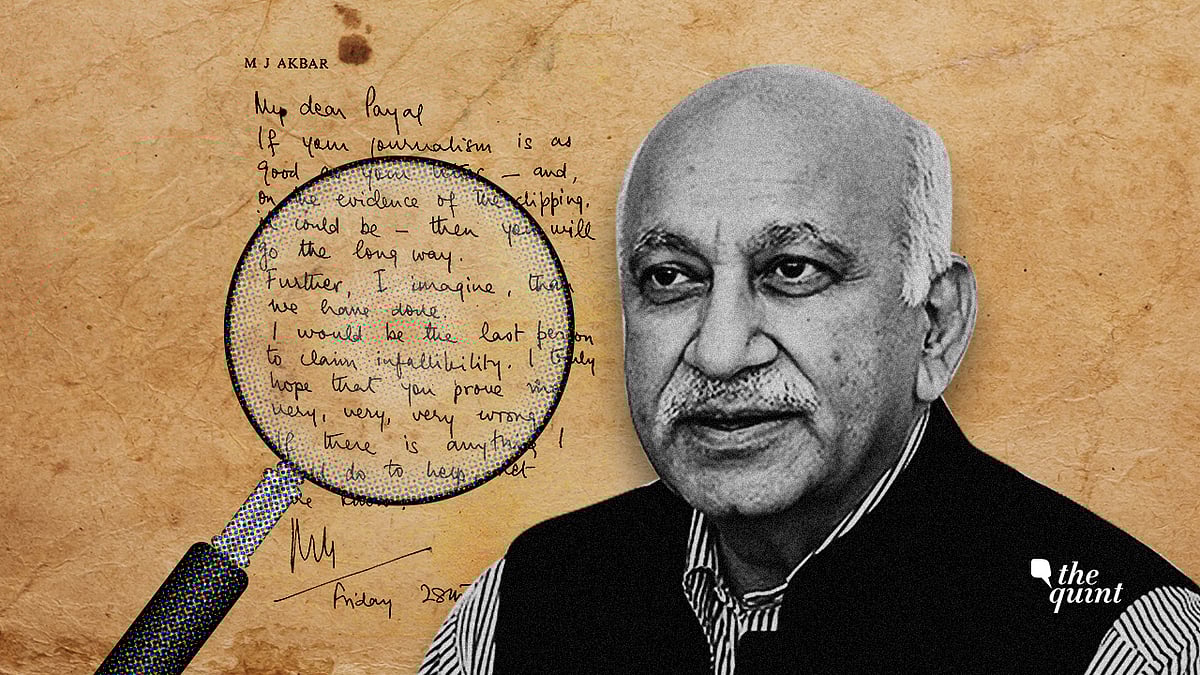 M J AKBAR
My dear Payal
If your journalism is as
good as your letter – and,
on the evidence of the clipping,
it could be – then you will
go the long way.
Further, I imagine, than
we have done.
I would be the last person
to claim infallibility. I truly
hope that you prove me
very, very, very wrong
If there is anything I
do to help let
me know.
Friday 28
the
quint